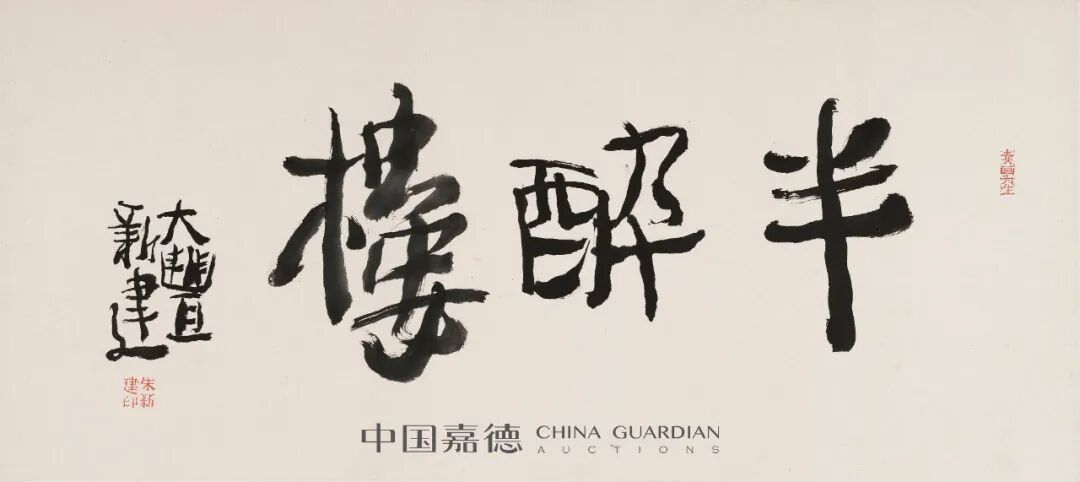 半酔樓
大豐
新建
朱新
建印
中国嘉德 CHINA GUARDIAN
AUCTIONS